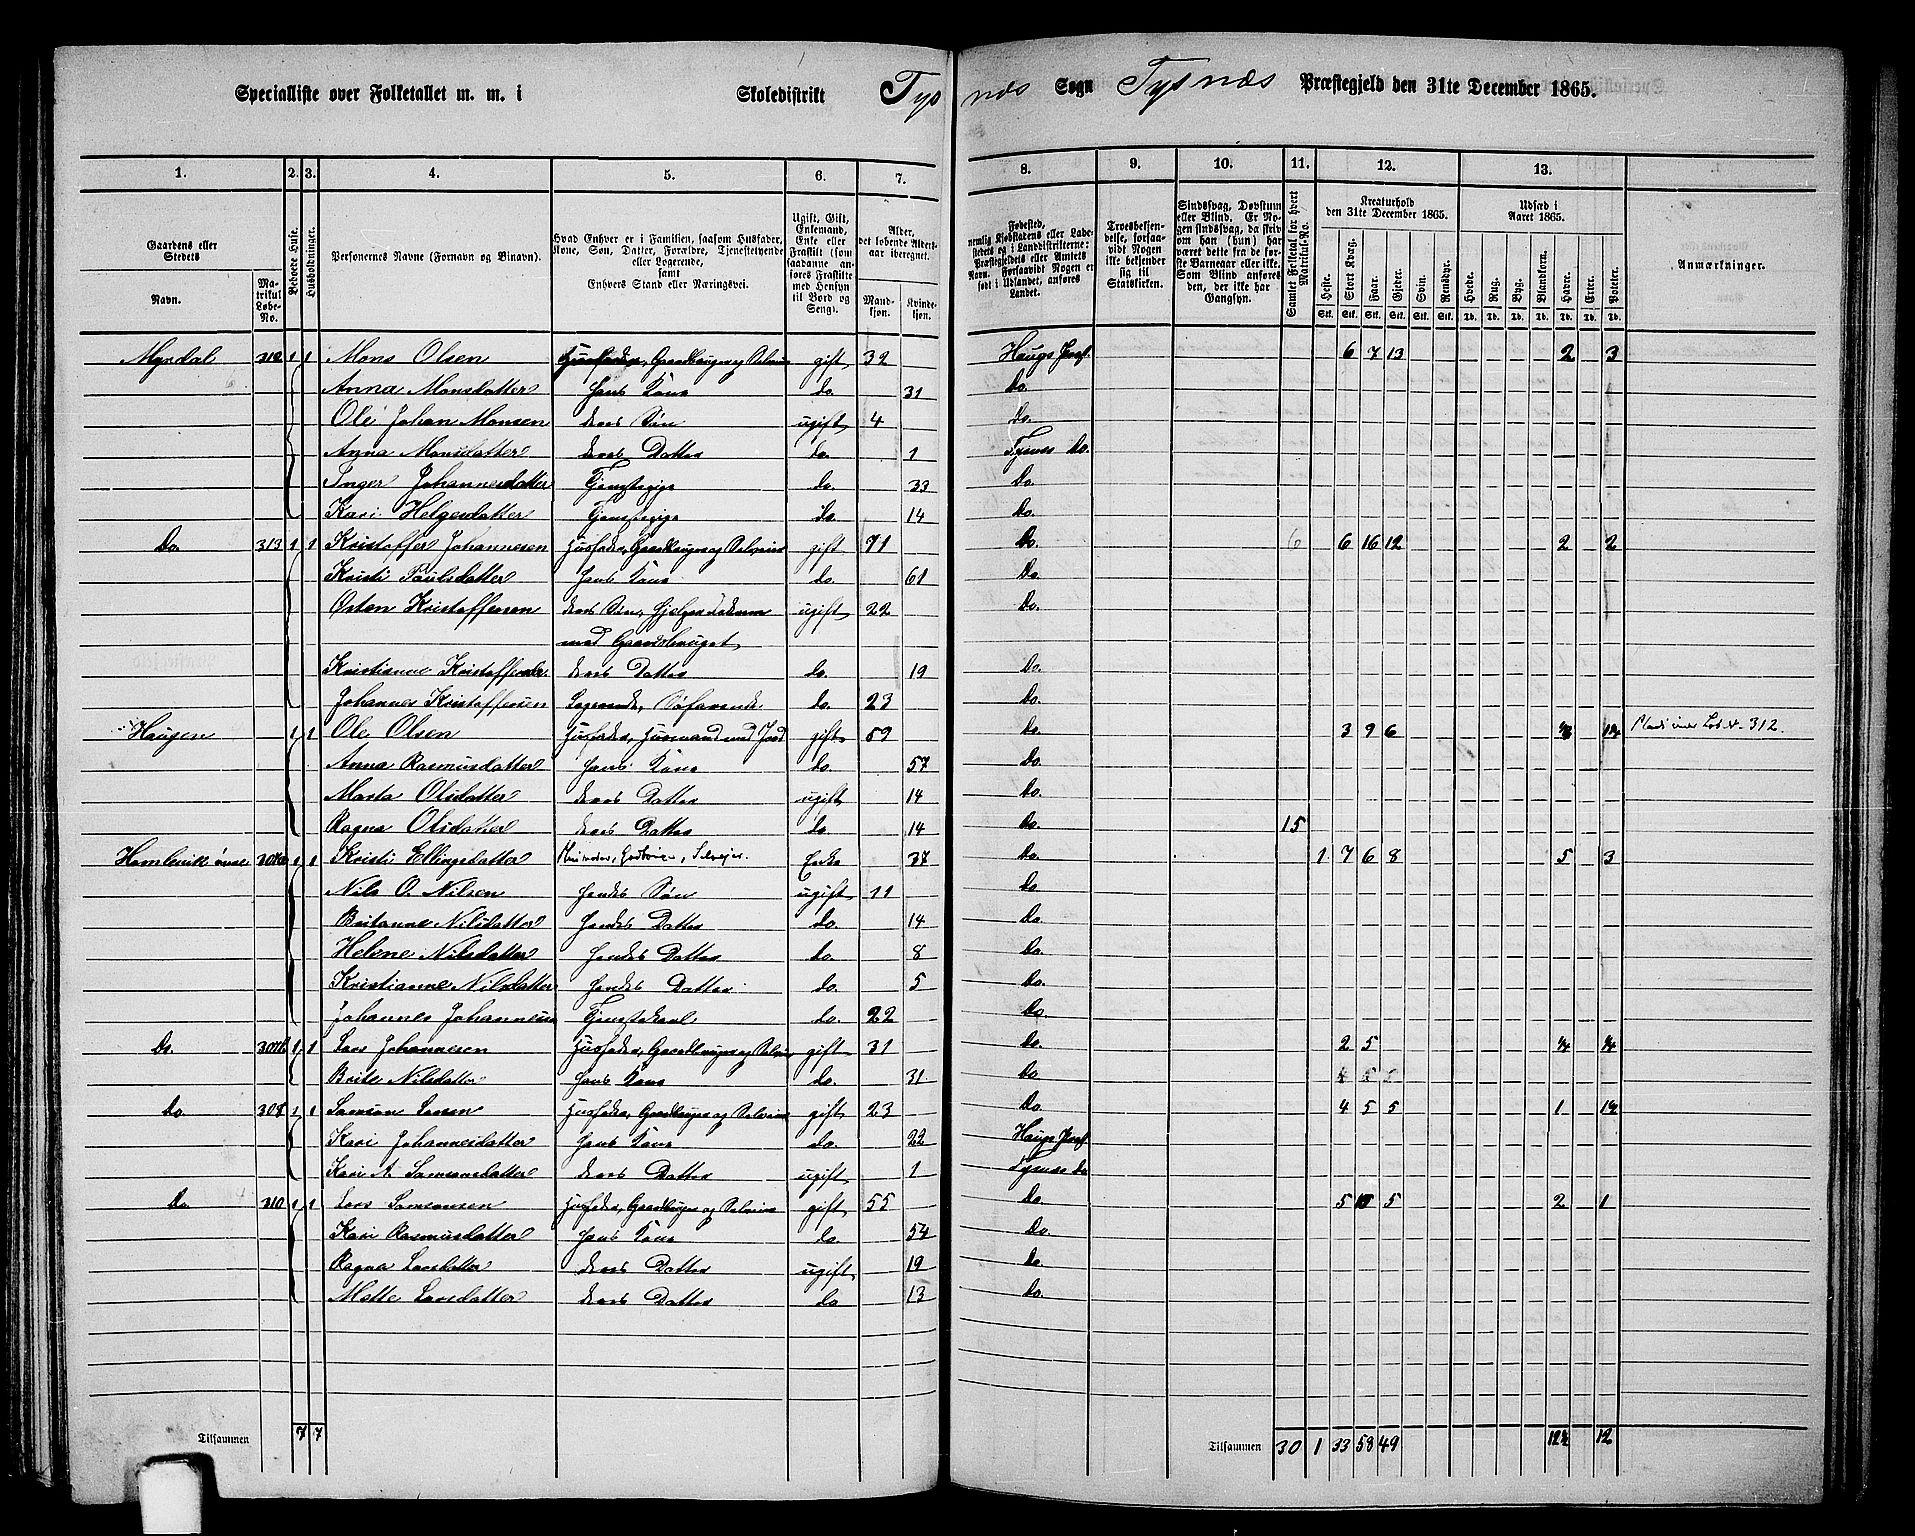 Specialliste over Folketallet m. m. i Skoledistrikt Tysnæs Sogn Tysnæs Præstegjeld den 31te December 1865.
1. 2. 3. 4. 5. 6. 7. 8. 9. 10. 11. 12. 13.
Gaardens eller Stedets
Navn.
Matrikul Løbe-No.
Beboede Huse.
Husholdninger.
Personernes Navne (Fornavn og Binavn).
Hvad Enhver er i Familien, saasom Husfader, Kone, Søn, Datter, Forældre, Tjenestetyende eller Logerende,
samt
Enhvers Stand eller Næringsvei.
Ugift, Gift, Enkemand, Enke eller Fraskilt (som saadanne anføres Fraskilte med Hensyn til Bord og Seng).
Alder, det løbende Aldersaar iberegnet.
Mandkjøn. Kvindekjøn.
Fødested, nemlig Kjøbstadens eller Ladestedets og i Landdistrikterne: Præstegjeldets eller Amtets Navn. Forsaavidt Nogen er født i Udlandet, anføres Landet.
Troesbekjendelse, forsaavidt Nogen ikke bekjender sig til Statskirken.
Sindssvag, Døvstum eller Blind. Er Nogen sindssvag, da skrives om han (hun) har været dette fra de første Barneaar eller ikke. Som Blind anføres den, der ikke har Gangsyn.
Samlet Folketal for hvert Matrikul-No.
Kreaturhold den 31te December 1865.
Heste. Stort Kvæg. Faar. Gjeder. Svin. Rensdyr.
Stk. Stk. Stk. Stk. Stk. Stk.
Udsæd i Aaret 1865.
Hvede. Rug. Byg. Blandkorn. Havre. Erter. Poteter.
Td. Td. Td. Td. Td. Td. Td.
Anmærkninger.
Myrdal 312 1 1 Mons Olsen Husfader, Gaardbruger og Selveier gift 32 Haugs Prgf. 6 7 13 2 3
Anna Monsdatter hans Kone do. 31 Do.
Ole Johan Monsen deres Søn ugift 4 Do.
Anna Monsdatter deres Datter do. 1 Tysnes Do.
Inger Johannesdatter Tjenstepige do. 33 Do.
Kari Helgesdatter Tjenstepige do. 14 Do.
Do. 313 1 1 Kristoffer Johannesen Husfader, Gaardbruger og Selveier gift 71 Do. 6 6 16 12 2 2
Kristi Paulsdatter hans Kone do. 61 Do.
Østen Kristoffersen deres Søn, hjelper Faderen ugift 22 Do.
med Gaardsbruget
Kristianne Kristoffersdtr. deres Datter do. 19 Do.
Johannes Kristoffersen Logerende, Søfarende. do. 23 Do.
Haugen 1 1 Ole Olsen Husfader, Husmand med Jord gift 59 Do. 3 9 6 Plads under Lob. No. 312.
Anna Rasmusdatter hans Kone do. 57 Do.
Marta Olsdatter deres Datter ugift 14 Do.
Ragna Olsdatter deres Datter do. 14 Do. 15
Humlevik øvre 1 1 Kristi Ellingsdatter Enke 37 Do. 1 7 6 8 5 3
Nils O. Nilsen hendes Søn ugift 11 Do.
Britanne Nilsdatter hendes Datter do. 14 Do.
Helene Nilsdatter hendes Datter do. 8 Do.
Kristianne Nilsdatter hendes Datter do. 5 Do.
Johannes Johannesen Tjenstekarl do. 22 Do.
Do. 1 1 Lars Johannesen Husfader, Gaardbruger og Selveier gift 31 Do. 2 5
Brite Nilsdatter hans Kone do. 31 Do.
Do. 308 1 1 Samson Larsen Husfader, Gaardbruger og Selveier gift 23 Do. 4 5 5 1
Kari Johannesdatter hans Kone do. 22 Haugs Prgf.
Kari A. Samsonsdatter deres Datter ugift 1 Tysnes Do
Do. 310 1 1 Lars Samsonsen Husfader, Gaardbruger og Selveier gift 55 Do. 5 5 2 1
Kari Rasmusdatter hans Kone do. 54 Do.
Ragna Larsdatter deres Datter ugift 19 Do.
Mette Larsdatter deres Datter do 13 Do.
Tilsammen 7 7 Tilsammen 30 1 33 58 49 12